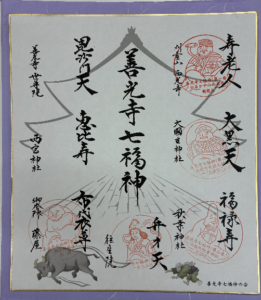 寿老人
大黒天
福禄寿
大國主神社
秋葉神社
弁才天
往生院
善光寺七福神
毘沙門天
恵比寿
西宮神社
布袋尊
善光寺世尊院
御本陣 藤屋
善光寺七福神の会